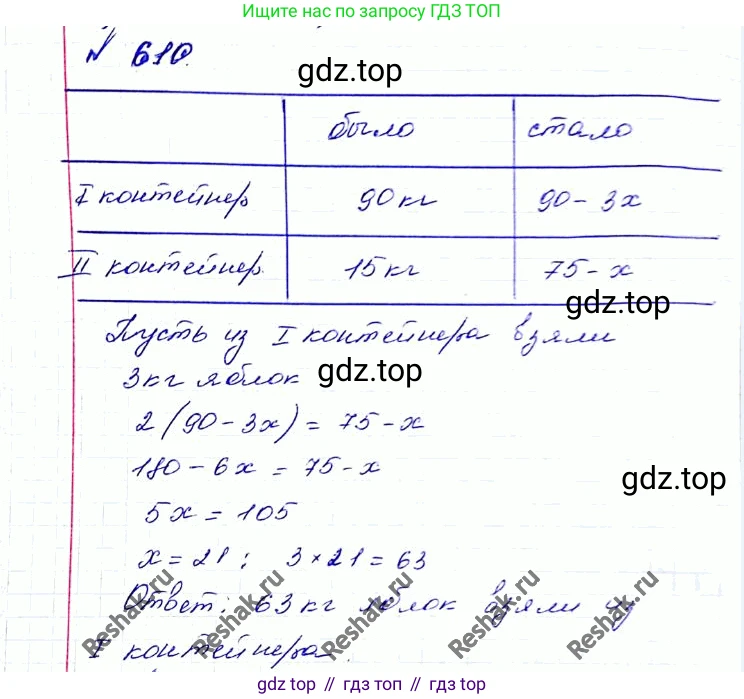 Ищите нас в поиске яндекса по запросу ГДЗ ТОП
№ 610.
gdz.top
было стало
I контейнер 90кг 90-3x
II контейнер 15кг 75-x
gdz.top
Пусть из I контейнера взяли
3кг яблок
gdz.top
2(90-3x)=75-x
180-6x=75-x
gdz.top
5x=105
x=21; 3×21=63
Ответ: 63кг яблок взяли из
I контейнера.
Reshak.ru Reshak.ru Reshak.ru Reshak.ru Reshak.ru
gdz.top // гдз топ // гдз.top